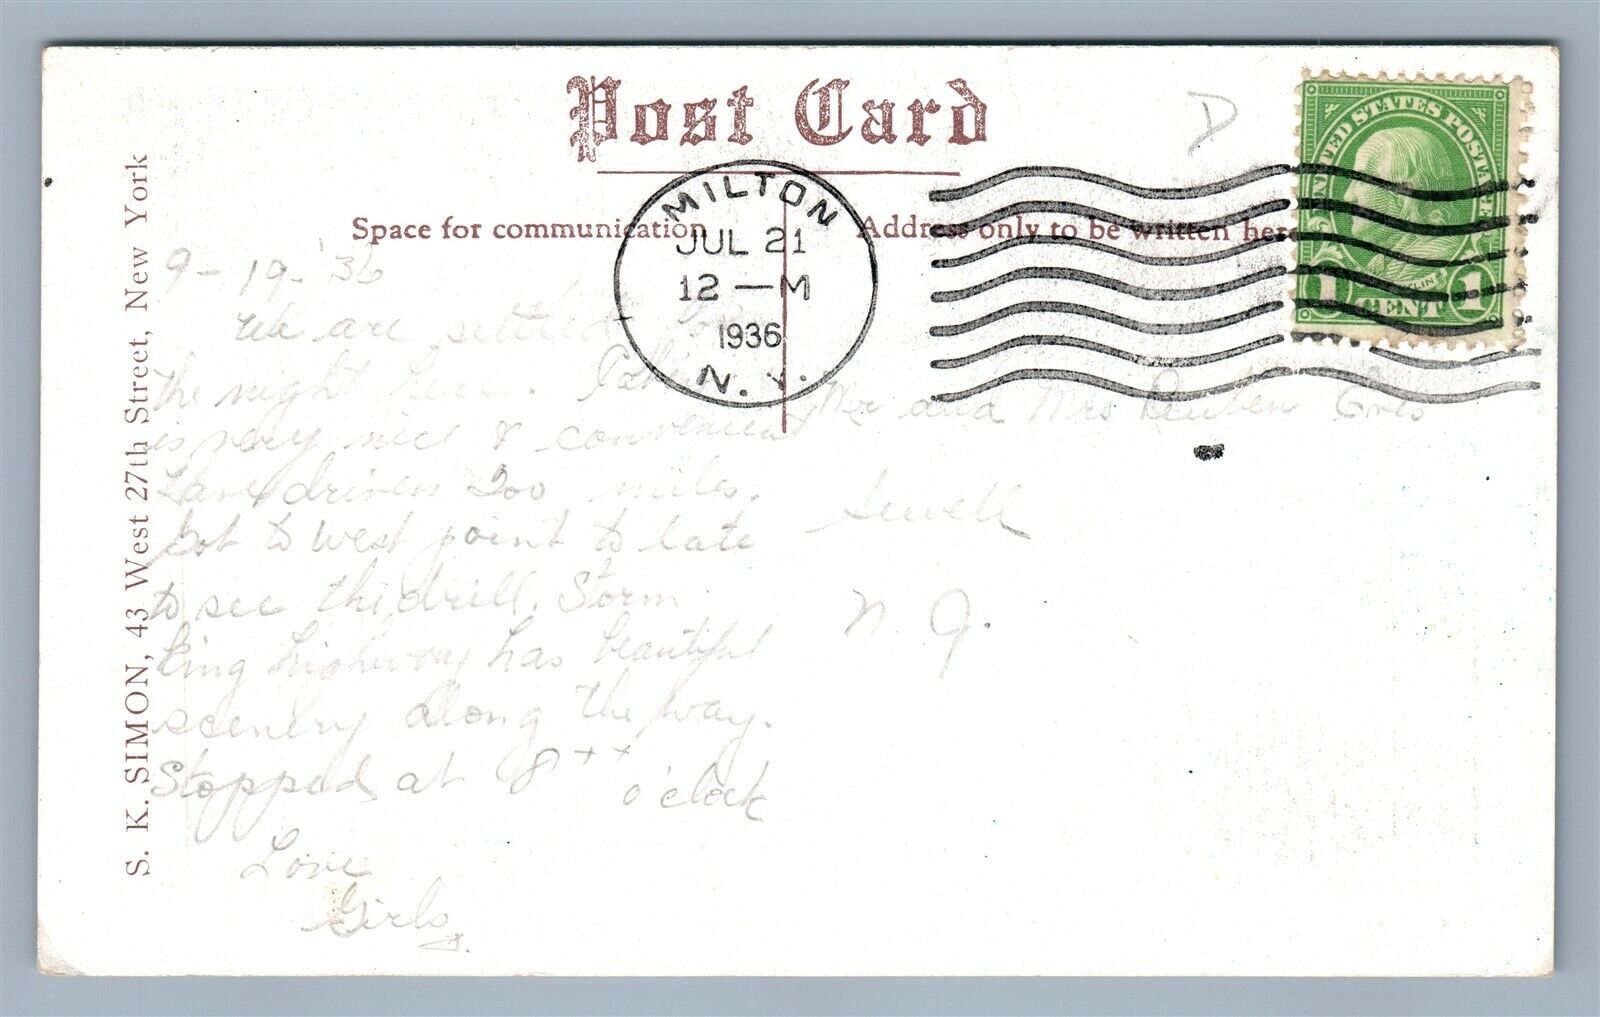 Post Card
Space for communication
Address only to be written here
S. K. SIMON, 43 West 27th Street, New York
MILTON
JUL 21
12 — M
1936
N. Y.
UNITED STATES POSTAGE
FRANKLIN
1 CENT 1
D
9-19-'36
We are settled for
the night here.
is very nice & convenient
Have driven 200 miles.
Got to West point to late
to see the drill. Storm
King highway has beautiful
scenery along the way.
Stopped at 8 ++ o'clock
Love
Girls.
Mr and Mrs Reuben
Sewell
N. J.